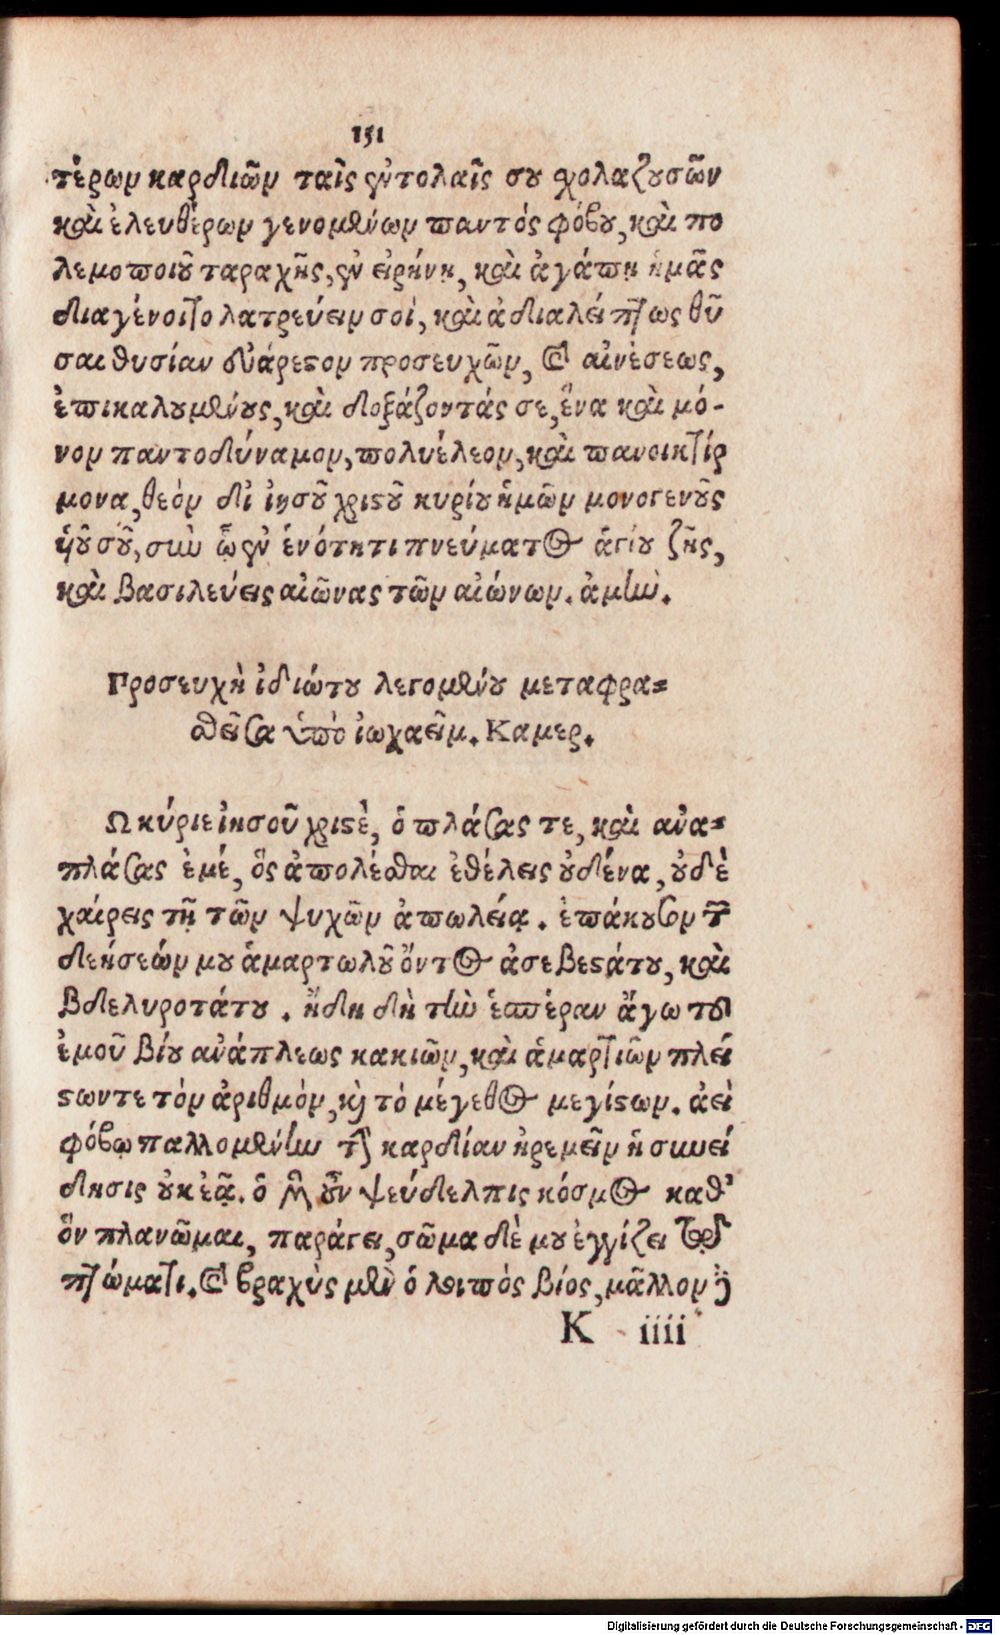 151
τέρων καρδιῶν ταῖς ἐντολαῖς σου σχολαζουσῶν
καὶ ἐλευθέρων γενομένων παντός φόβου, καὶ πο
λεμοποιοῦ ταραχῆς, ἐν εἰρήνῃ, καὶ ἀγάπῃ ἡμᾶς
διαγένοιτο λατρεύειν σοί, καὶ ἀδιαλείπτως θῦ
σαι θυσίαν εὐάρεστον προσευχῶν, καὶ αἰνέσεως,
ἐπικαλουμένους, καὶ δοξάζοντάς σε, ἕνα καὶ μό-
νον παντοδύναμον, πολυέλεον, καὶ πανοικτίρ
μονα, θεόν δι ἰησοῦ χριστοῦ κυρίου ἡμῶν μονογενοῦς
ὑοῦ σοῦ, σὺν ᾧ ἐν ἑνότητι πνεύματος ἁγίου ζῆς,
καὶ βασιλεύεις αἰῶνας τῶν αἰώνων. ἀμὴν.
Προσευχὴ ἰδιώτου λεγομένου μεταφρα-
σθεῖσα ὑπὸ ἰωχαεῖμ. Καμερ.
Ω κύριε ἰησοῦ χριστὲ, ὁ πλάσας τε, καὶ ἀνα-
πλάσας ἐμέ, ὃς ἀπολέσθαι ἐθέλεις οὐδένα, οὐδὲ
χαίρεις τῇ τῶν ψυχῶν ἀπωλείᾳ. ἐπάκουσον τῶν
δεήσεών μου ἁμαρτωλοῦ ὄντος ἀσεβεστάτου, καὶ
βδελυροτάτου. ἤδη δὴ τὴν ἑσπέραν ἄγω τοῦ
ἐμοῦ βίου ἀνάπλεως κακιῶν, καὶ ἁμαρτιῶν πλεί
στων τε τὸν ἀριθμόν, καὶ τὸ μέγεθος μεγίστων. ἀεὶ
φόβῳ παλλομένην τὴν καρδίαν ἠρεμεῖν ἡ συνεί
δησις οὐκ ἐᾷ. ὁ μὲν οὖν ψεύδελπις κόσμος καθ'
ὃν πλανῶμαι, παράγει, σῶμα δὲ μου ἐγγίζει τῷ
πτώματι. καὶ βραχὺς μὲν ὁ λοιπὸς βίος, μᾶλλον
K iiii
Digitalisierung gefördert durch die Deutsche Forschungsgemeinschaft - DFG